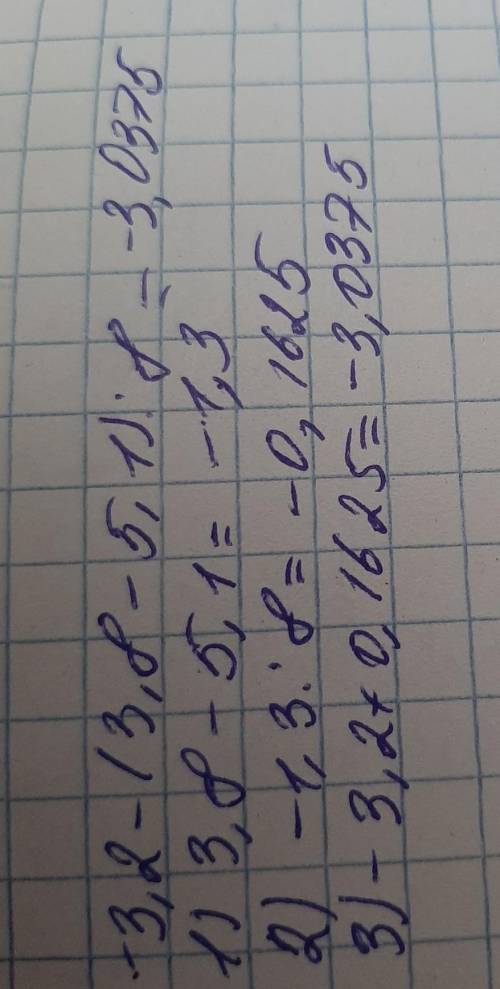 -3,2-(3,8-5,1):8=-3,0375
1) 3,8-5,1=-1,3
2) -1,3:8=-0,1625
3) -3,2+0,1625=-3,0375